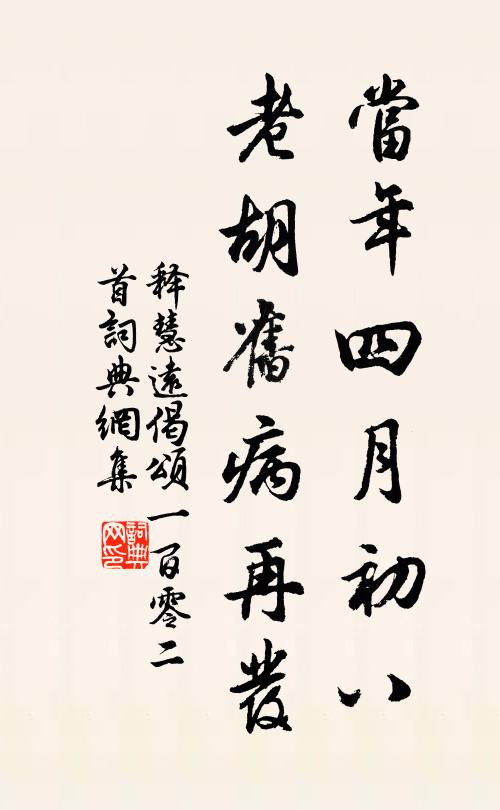 當年四月初八
老胡舊病再發
释慧遠偈頌一百零二
首詞典網集
詞典
网印